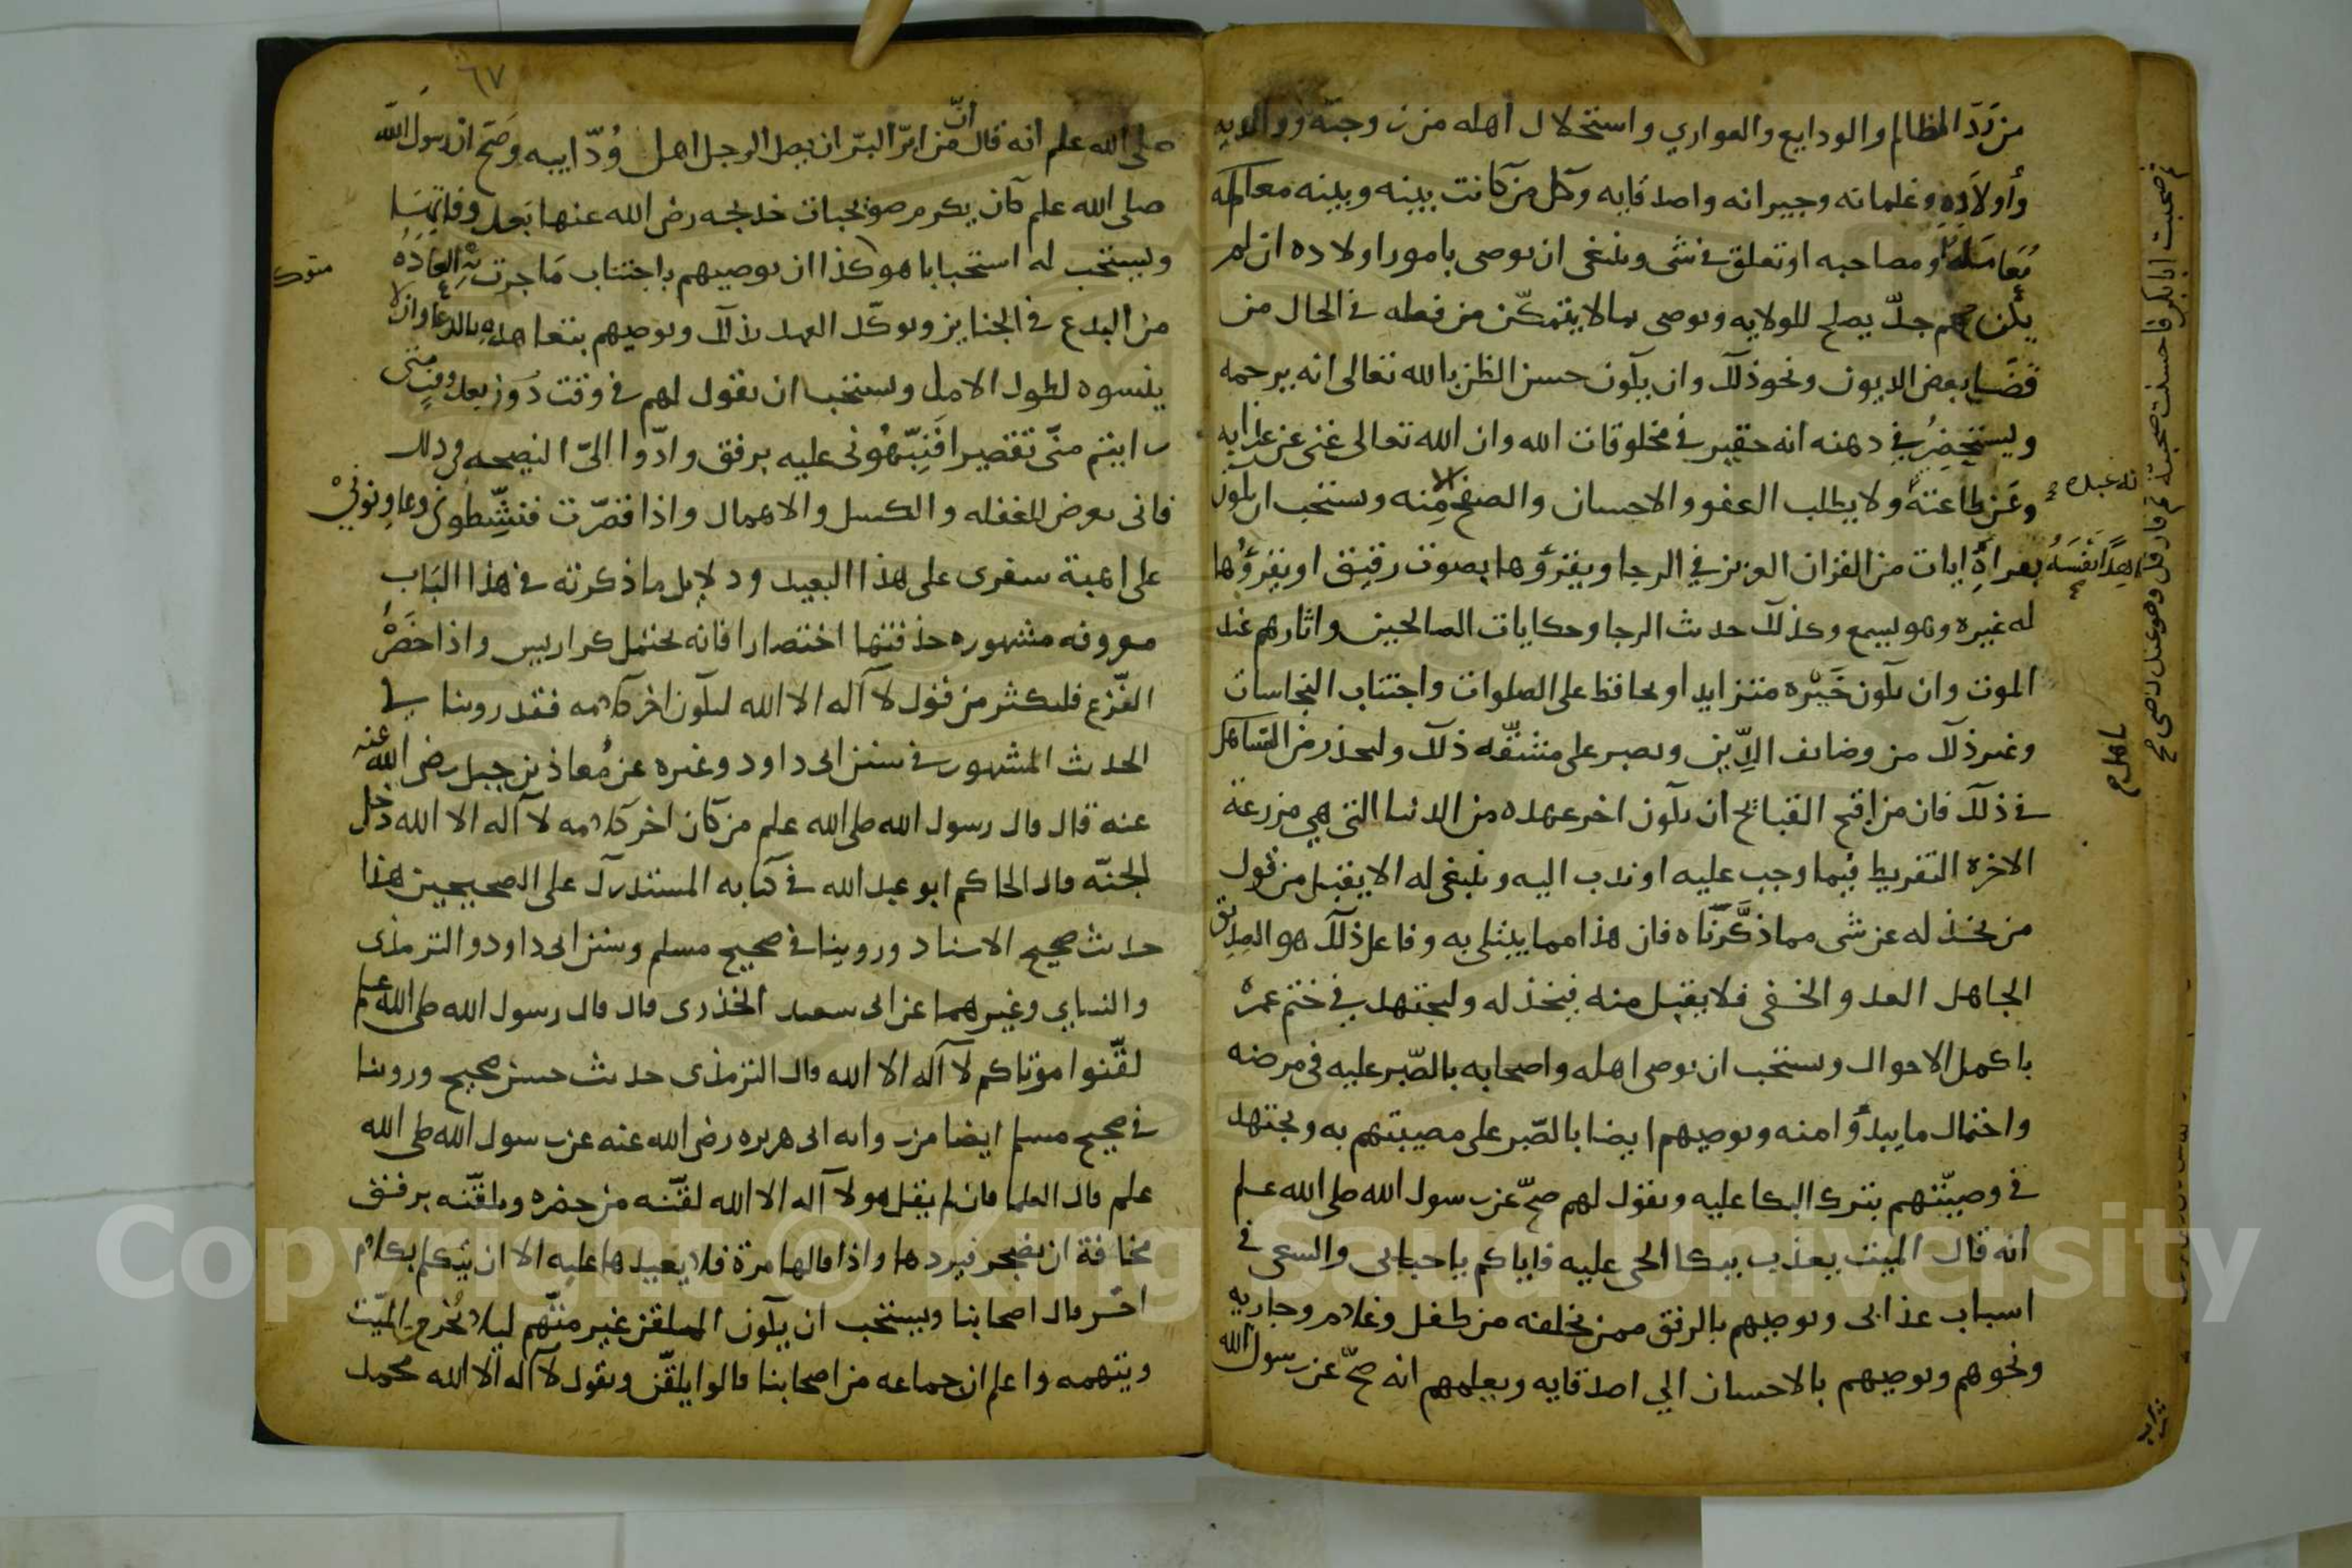 من رَدّ المظالم والودايع والعواري واستحلال اهله من زوجته ووالديه
وأولادِهِ وغلمانه وجيرانه واصدقايه وكل من كانت بينه وبينه معامله
ومصاحبه او تعلق في شى وينبغى ان يوصى بامور اولاده ان لم
يكن لهم جدّ يصلح للولايه ويوصى بما لا يتمكّن من فعله في الحال من
قضَا بعض الديون ونحو ذلك وان يكون حسن الظن بالله تعالى انه يرحمه
ويستحضِرُ في ذهنه انه حقير في مخلوقات الله وان الله تعالى غنى عن عذابه
وعَن طاعته ولا يطلب العفو والاحسان والصفح الا مِنه ويستحب ان يكون
بقراةِ ايات من القران العزيز في الرجا ويقرؤها بصوت رقيق او يقرؤُها
له غيره وهو يسمع وكذلك حديث الرجا وحكايات الصالحين واثارهم عند
الموت وان يكون خَيْره متزايدا ويحافظ على الصلوات واجتناب النجاسات
وغير ذلك من وضايف الدِّين ويصبر على مشقّه ذلك وليحذر من التساهل
في ذلك فان من اقبح القبائح ان يكون اخر عهده من الدنيا التى هي مزرعة
الاخره التفريط فيما وجب عليه او ندب اليه وينبغى له الا يقبل من قول
من يخذله عن شى مما ذكَّرنَاه فان هذا مما يبتلى به وفاعل ذلك هو الصديق
الجاهل العدو الخفى فلا يقبل منه فيخذله وليجتهد في ختم عمره
باكمل الاحوال ويستحب ان يوصى اهله واصحابه بالصّبر عليه فى مرضه
واحتمال ما يبدؤا منه ويوصيهم ايضا بالصّبر على مصيبتهم به ويجتهد
في وصيّتهم بترك البكا عليه ويقول لهم صحّ عن رسول الله صلى الله علم
انه قال الميت يعذب ببكا الحى عليه فاياكم يا احبابى والسعى في
اسباب عذابى ويوصيهم بالرفق ممن يخلفه من طفل وغلام وجاريه
ونحوهم ويوصيهم بالاحسان الي اصدقايه ويعلمهم انه صحّ عن رسول الله
٦٧
صلى الله علم انه قال انّ من ابرّ البرّ ان يصل الرجل اهل وُدّ ابيه وصَحّ ان رسول الله
صلى الله علم كان يكرم صويحبات خديجه رضى الله عنها بَعد وفاتِهَا
ويستحب له استحبابا هوكذا ان يوصيهم باجتناب مَا جرت به العَادَه
من البدع في الجنايز ويوكّد العهد بذلك ويوصيهم بتعاهدِهِ بالدعا وان لا
ينسوه لطول الامل ويستحب ان يقول لهم في وقت دون بعد وقتٍ متى
رايتم منّى تقصيرا فَنَبّهُونى عليه برفق وادّوا الىّ النصيحه فى ذلك
فانى معرض للغفله والكسل والاهمال واذا قصّرت فنشِّطونى وعاونونيْ
على اهبة سفرى على هذا البعيد ودلايل ما ذكرته في هذا البَاب
معروفه مشهوره حذفتها اختصارا فانه يحتمل كراريس واذا حضَرَهُ
النّزع فليكثر من قول لا آله الا الله ليكون اخر كلامه فقد روينا في
الحديث المشهور في سنن ابى داود وغيره عن مُعاذ بن جبل رضى الله عنه
عنه قال قال رسول الله صلى الله علم من كان اخر كلامه لا آله الا الله دخل
الجنّه قال الحاكم ابو عبد الله في كتابه المستدرك على الصحيحين هذا
حديث صحيح الاسناد وروينا في صحيح مسلم وسنن ابى داود والترمذى
والنساي وغيرهما عن ابى سعيد الخذرى قال قال رسول الله صلى الله علم
لقّنوا موتاكم لا آله الا الله قال الترمذى حديث حسن صحيح وروينا
في صحيح مسلم ايضا من روايه ابى هريره رضى الله عنه عن رسول الله صلى الله
علم قال العلما فان لم يقل هو لا آله الا الله لقّنه من حضره ويلقّنه برفق
مخافة ان يضجر فيردها واذا قالها مرة فلا يعيدها عليه الا ان يتكلم بكلام
اخر قال اصحابنا ويستحب ان يكون الملقن غير متّهم ليلا يُحرج الميّت
ويتهمه واعلم ان جماعه من اصحابنا قالوا يلقّن ويقول لا آله الا الله محمد
Copyright © King Saud University